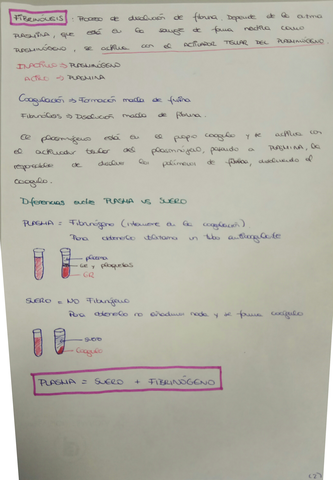 FIBRINÓLISIS : Proceso de disolución de fibrina. Depende de la enzima
PLASMINA, que está en la sangre de forma inactiva como
PLASMINÓGENO, se activa con el ACTIVADOR TISULAR DEL PLASMINÓGENO
INACTIVO → PLASMINÓGENO
ACTIVO → PLASMINA
Coagulación → Formación malla de fibrina
Fibrinólisis → Disolución malla de fibrina.
El plasminógeno está en el propio coágulo y se activa con
el activador tisular del plasminógeno, pasando a PLASMINA, la
responsable de disolver los polímeros de fibrina, disolviendo el
coágulo.
Diferencias entre PLASMA VS SUERO
PLASMA = Fibrinógeno (interviene en la coagulación)
Para obtenerlo utilizamos un tubo anticoagulante
plasma
GB y plaquetas
GR
SUERO = NO Fibrinógeno
Para obtenerlo no añadimos nada y se forma coágulo
suero
Coágulo
PLASMA = SUERO + FIBRINÓGENO
(2)